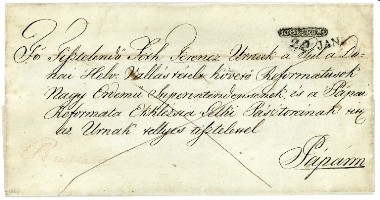 20 JAN.
Fő Tisztelendő Tóth Ferencz Urnak a
Helv. Vallástétele követő Reformátusok
Nagy Érdemű Superintendensének, és a Pápai
Reformata Ekklézsia Lelki Pásztorának
az Urnak tellyes tisztelettel
Pápánn